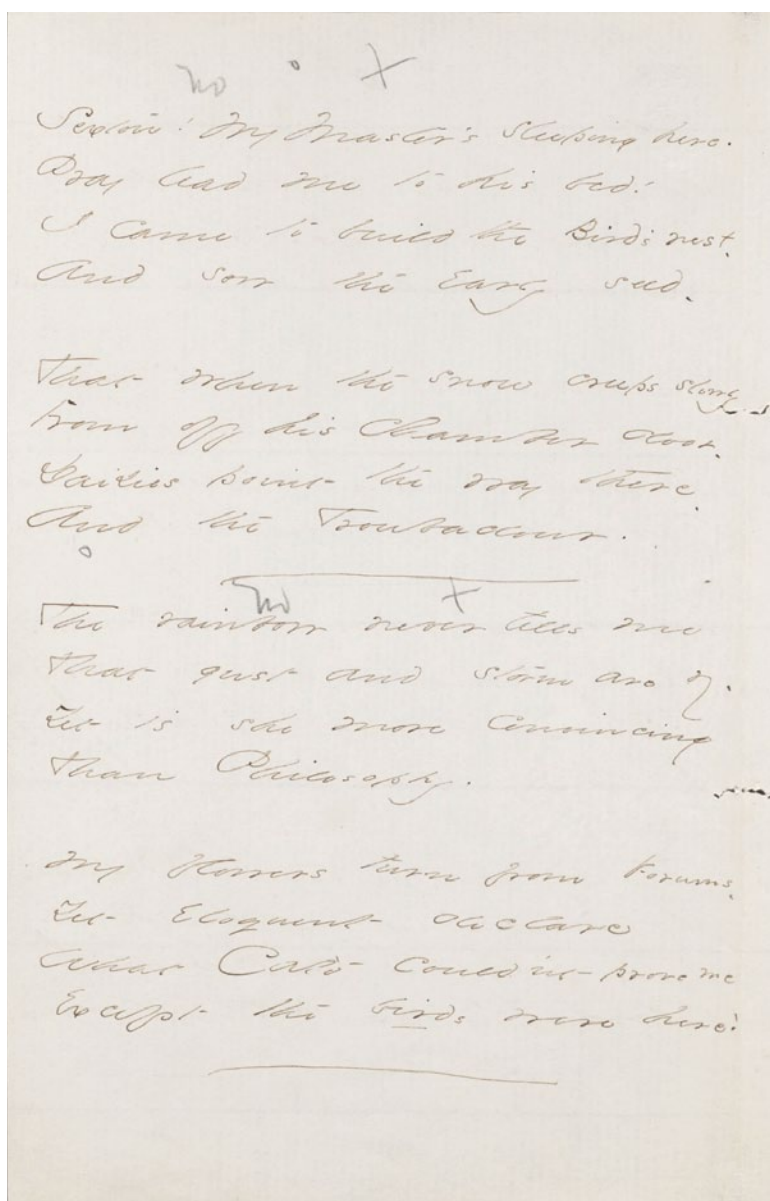 no o X
Sexton! My Master's sleeping here.
Pray lead me to his bed!
I came to build the Bird's nest,
And sow the Early seed.
That when the snow creeps slowly
From off his Chamber door,
Daisies point the way there,
And the Troubadour.
o
no X
The rainbow never tells me
That gust and storm are by.
Yet is she more Convincing
Than Philosophy.
My flowers turn from Forums,
Yet Eloquent declare
What Cato could n't prove me
Except the birds were here!